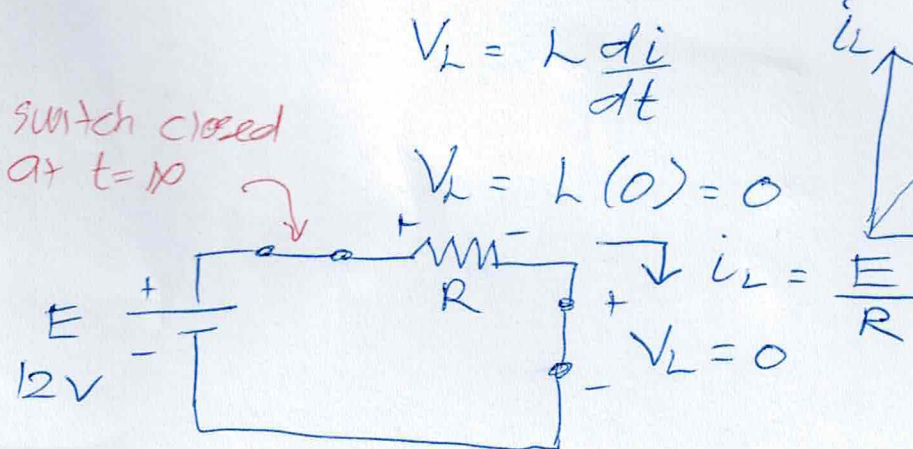 V_L = L di/dt
i_L
switch closed
at t=∞
V_L = L (0) = 0
+ -
R
i_L = E/R
+
E
-
12V
+
V_L = 0
-